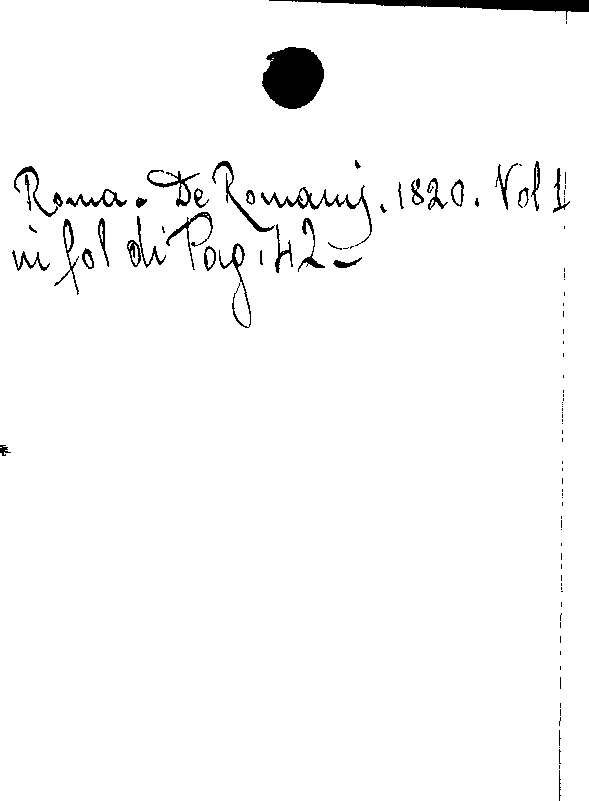 Roma. De Romanij. 1820. Vol 1
in fol di Pag. 42